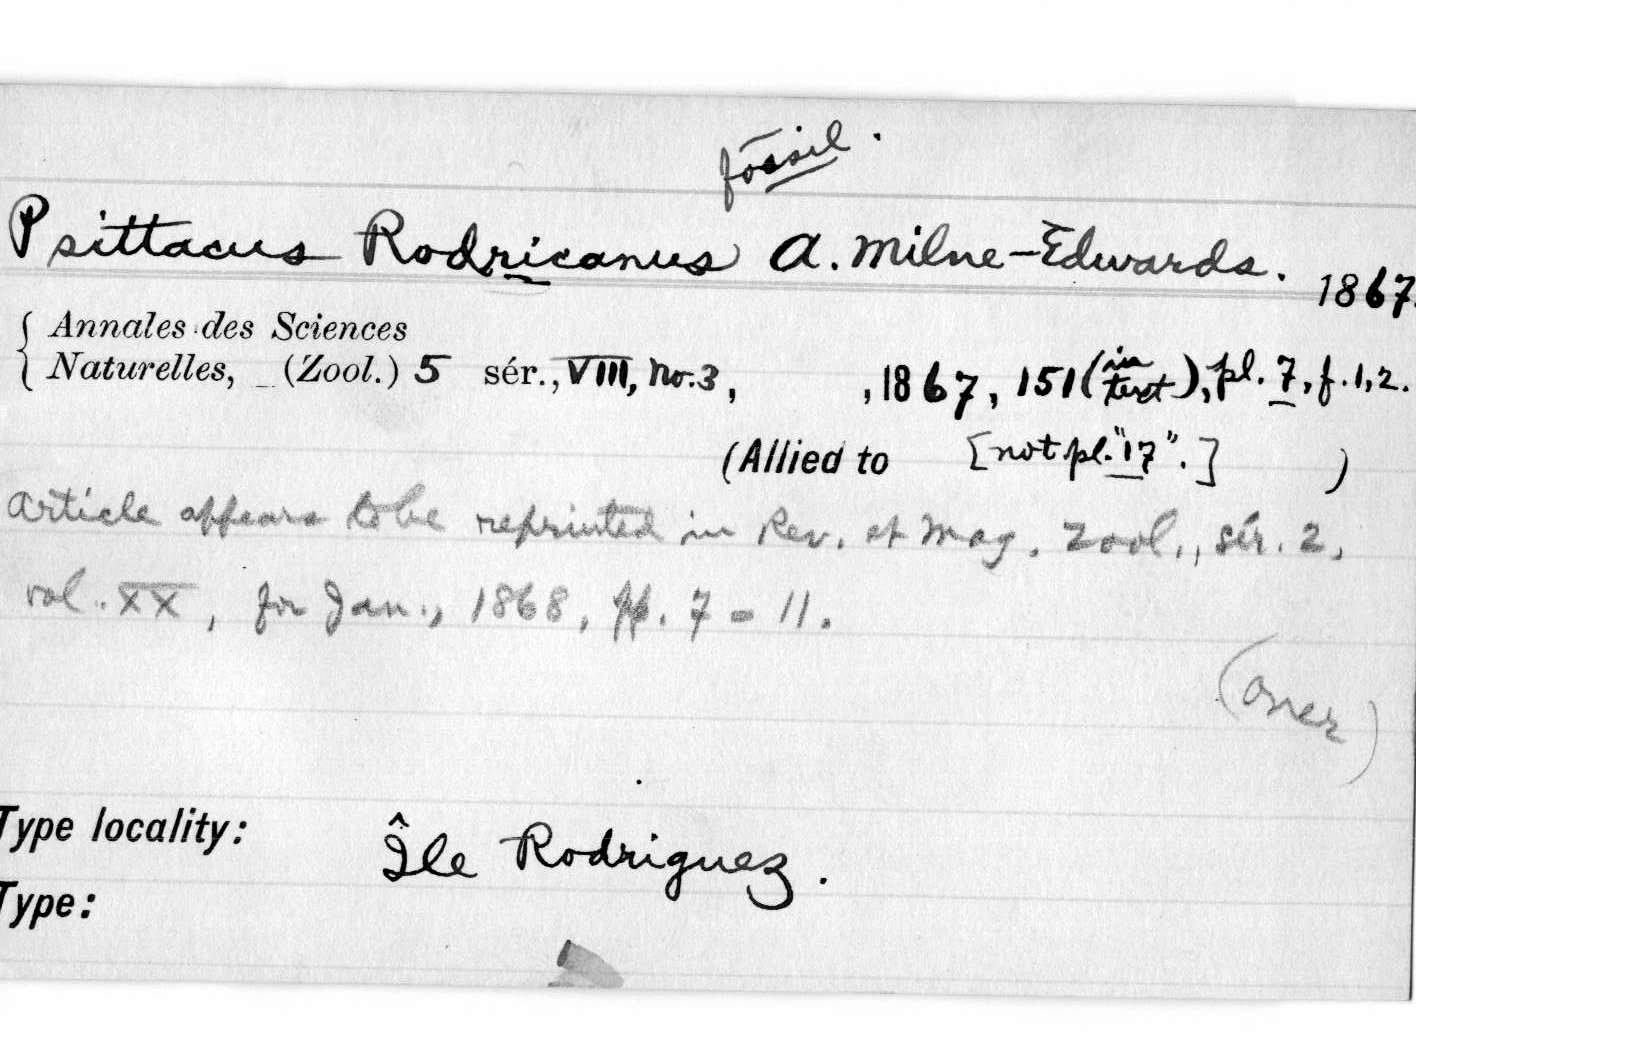 fossil.
Psittacus Rodricanus A. Milne-Edwards. 1867.
Annales des Sciences
Naturelles, (Zool.) 5 sér., VIII, No. 3, , 1867, 151 (in text), pl. 7, f. 1, 2.
(Allied to [not pl. "17".] )
Article appears to be reprinted in Rev. et Mag. Zool., sér. 2,
vol. XX, for Jan., 1868, pp. 7-11.
(over)
Type locality: Île Rodriguez.
Type: